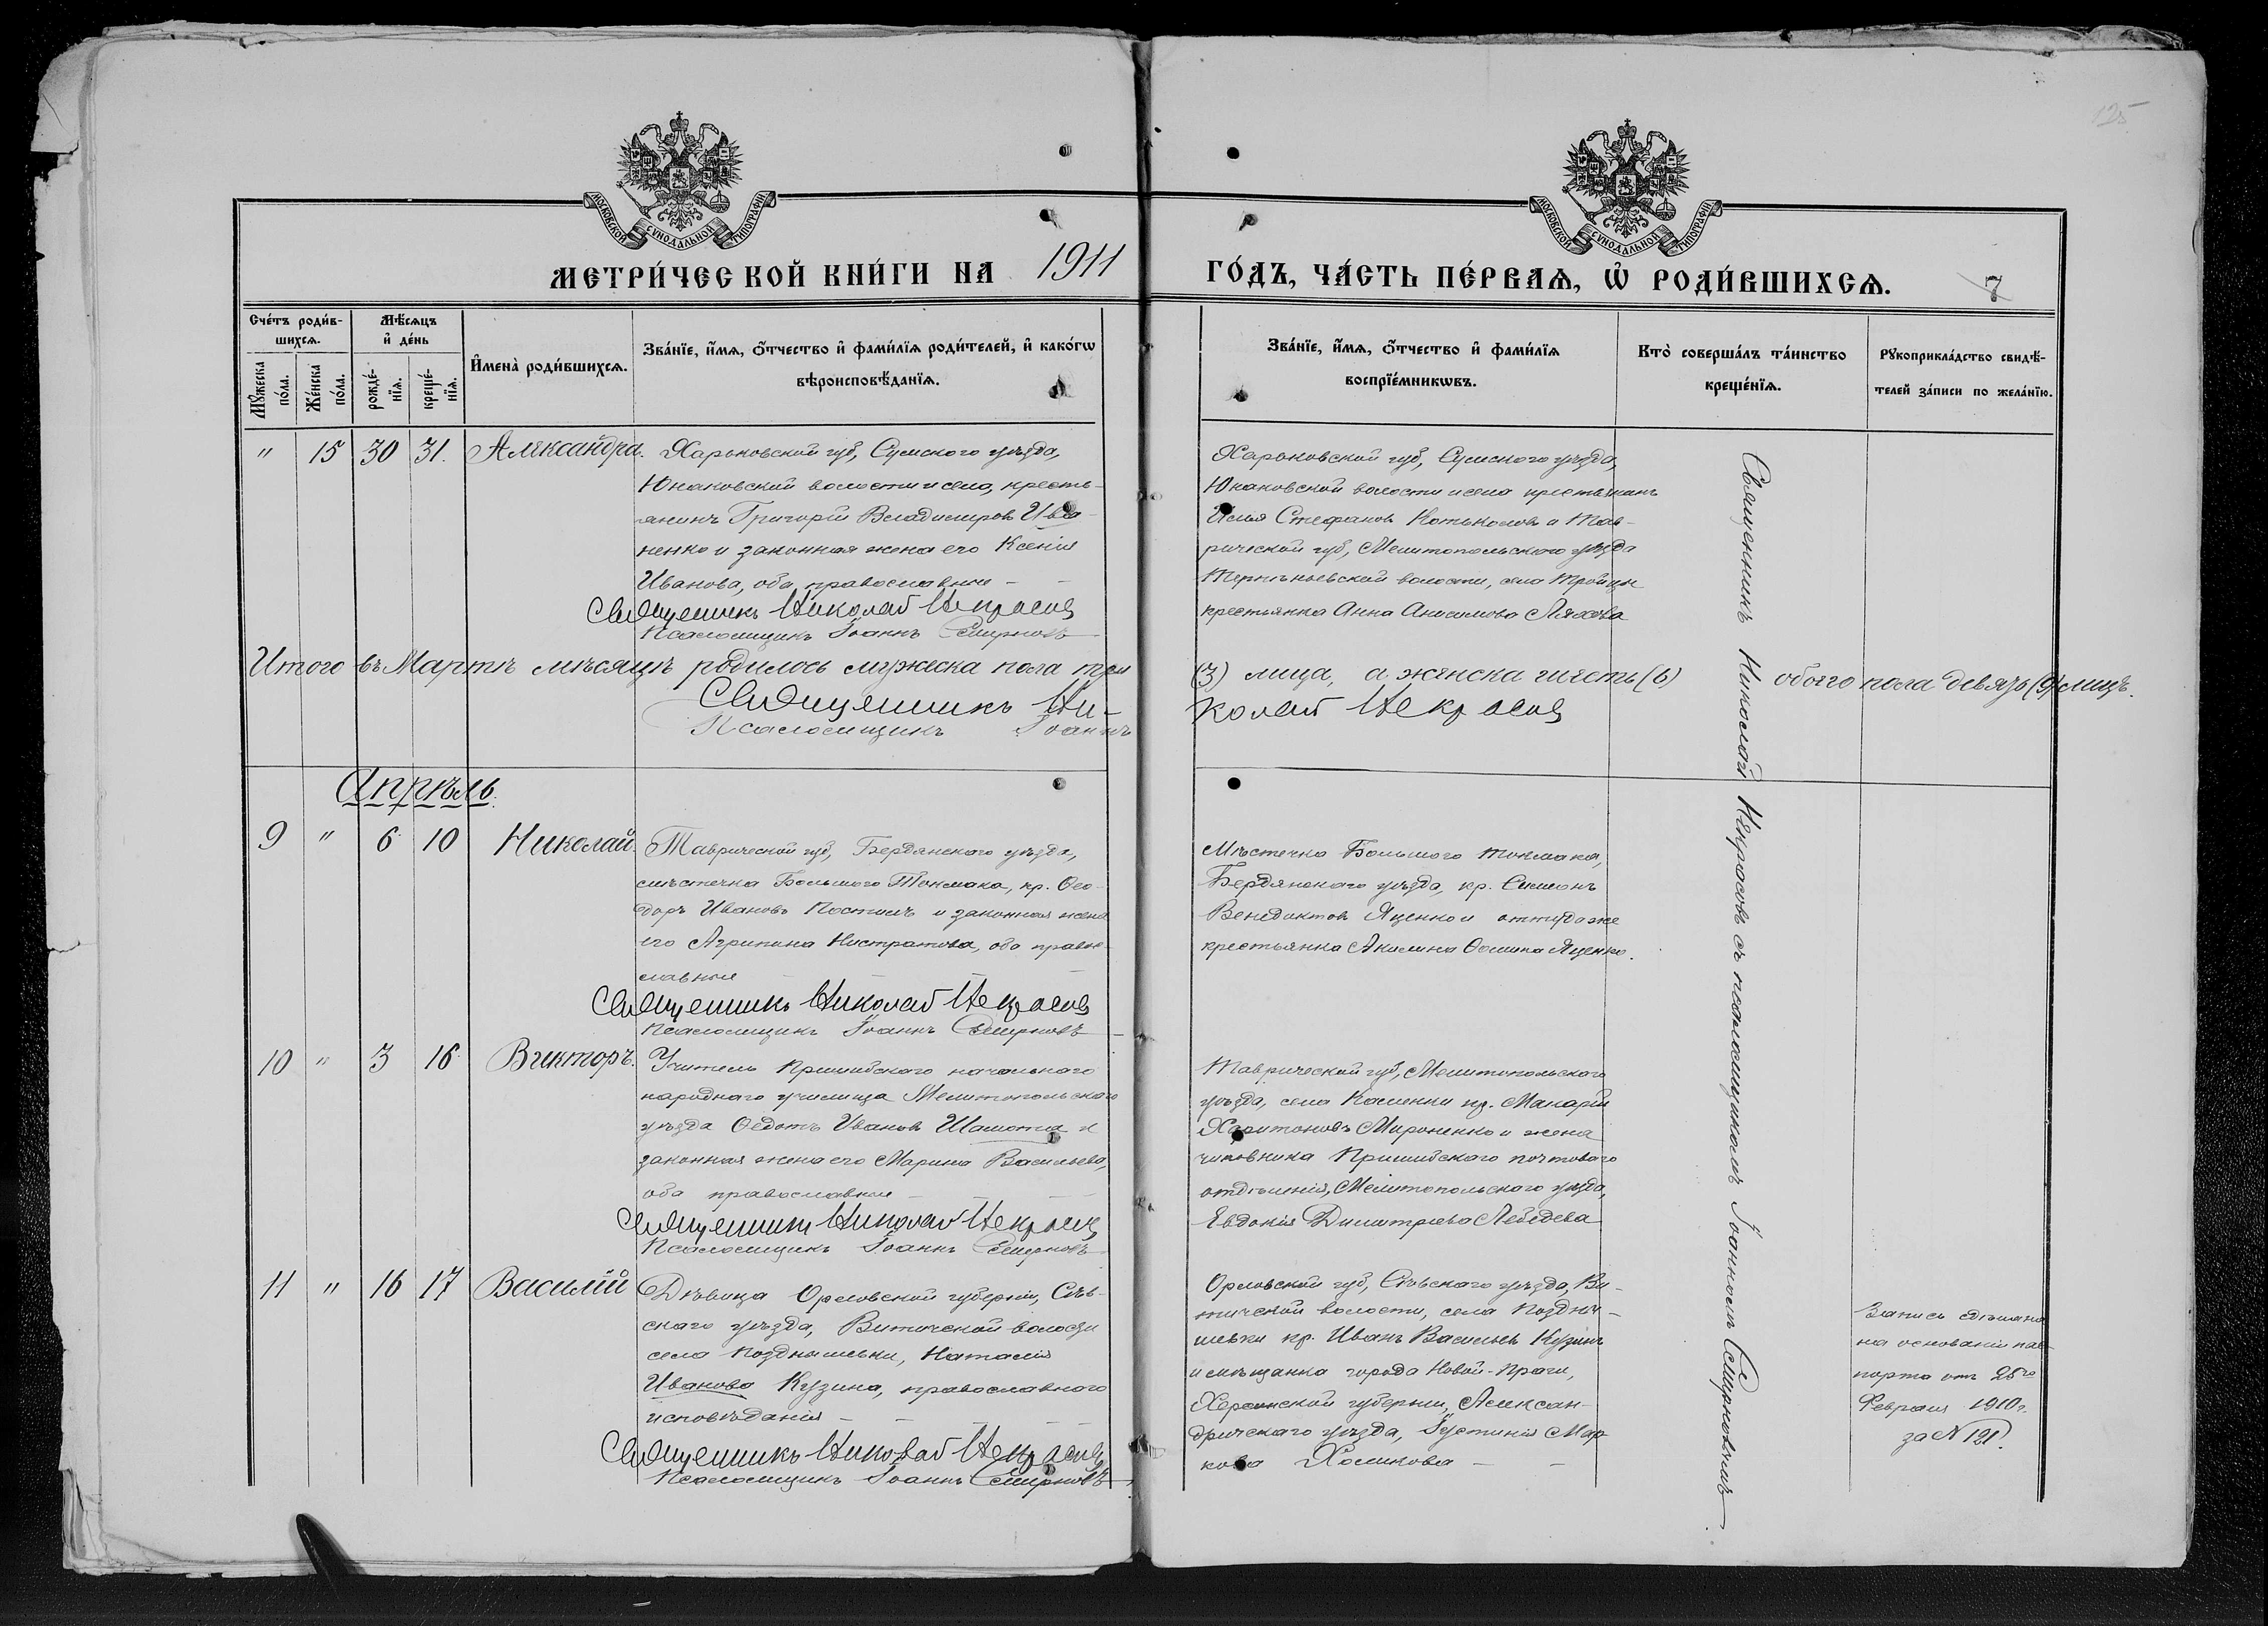 125
МОСКОВСКОЙ СѴНОДАЛЬНОЙ ТИПОГРАФІИ
МОСКОВСКОЙ СѴНОДАЛЬНОЙ ТИПОГРАФІИ
МЕТРИ́ЧЕСКОЙ КНИ́ГИ НА 1911
ГО́ДЪ, ЧА́СТЬ ПЕ́РВАѦ, Ѡ҆ РОДИ́ВШИХСѦ.
7
Сче́тъ роди́в-
шихсѧ.
Мѣ́сѧцъ
и҆ де́нь
Мꙋ́жеска
по́ла.
Же́нска
по́ла.
рожде́-
нїѧ.
креще́-
нїѧ.
И҆мена̀ роди́вшихсѧ.
Зва́нїе, и҆́мѧ, ѻ҆́тчество и҆ фами́лїѧ роди́телей, и҆ како́гѡ
вѣроисповѣ́данїѧ.
Зва́нїе, и҆́мѧ, ѻ҆́тчество и҆ фами́лїѧ
воспрїе́мникѡвъ.
Кто̀ соверша́лъ та́инство
креще́нїѧ.
Рꙋкоприкла́дство свидѣ́-
телей за́писи по жела́нїю.
" 15 30 31. Александра.
Харьковской губ, Сумского уѣзда,
Юнаковской волости и села, кресть-
янинъ Григорій Владиміровъ Ива-
ненко и законная жена его Ксенія
Иванова, оба православные
Священникъ Николай Некрасовъ
Псаломщикъ Іоаннъ Смирновъ
Харьковской губ, Сумского уѣзда,
Юнаковской волости и села крестьянинъ
Илья Стефановъ и Тав-
рической губ, Мелитопольского уѣзда
волости, села Троицы
крестьянка Анна Анисимова Ляхова
Итого въ Мартѣ мѣсяцѣ родилось мужеска пола три
(3) лица, а женска шесть (6) обоего пола девять (9) лицъ.
Священникъ Ни-
колай Некрасовъ
Псаломщикъ Іоаннъ
Апрѣль.
9 " 6 10 Николай.
Таврической губ, Бердянского уѣзда,
мѣстечка Большого Токмака, кр. Ѳео-
доръ Ивановъ Костинъ и законная жена
его Агрипина Нистратова, оба право-
славные
Священникъ Николай Некрасовъ
Псаломщикъ Іоаннъ Смирновъ
Мѣстечка Большого Токмака,
Бердянскаго уѣзда, кр. Симеонъ
Венедиктовъ Яценко и оттуда же
крестьянка Акилина Ѳомина Яценко.
10 " 3 16 Викторъ.
Учитель Пришибского начального
народнаго училища Мелитопольскаго
уѣзда Ѳедотъ Ивановъ Шамота и
законная жена его Марина Васильева,
оба православные
Священникъ Николай Некрасовъ
Псаломщикъ Іоаннъ Смирновъ
Таврической губ, Мелитопольского
уѣзда, села Каменки кр. Макарій
Харитоновъ Мироненко и жена
чиновника Пришибского почтоваго
отдѣленія, Мелитопольского уѣзда,
Евдокія Димитріева Лебедева
11 " 16 17 Василій
Дѣвица Орловской губерніи, Сѣв-
скаго уѣзда, Витичской волости
села Позднышевки, Наталія
Иванова Кузина, православного
исповѣданія
Священникъ Николай Некрасовъ
Псаломщикъ Іоаннъ Смирновъ
Орловской губ, Сѣвскаго уѣзда, Ви-
тичской волости, села Поздны-
шевки кр. Иванъ Васильевъ Кузинъ
и мѣщанка города Новой-Праги,
Херсонской губерніи, Алексан-
дрійскаго уѣзда, Іустинія Мар-
кова Хомикова
Священникъ Николай Некрасовъ съ псаломщикомъ Іоанномъ Смирновымъ
Запись сдѣлана
на основаніи пас-
порта отъ 25го
Февраля 1910 г.
за № 121.